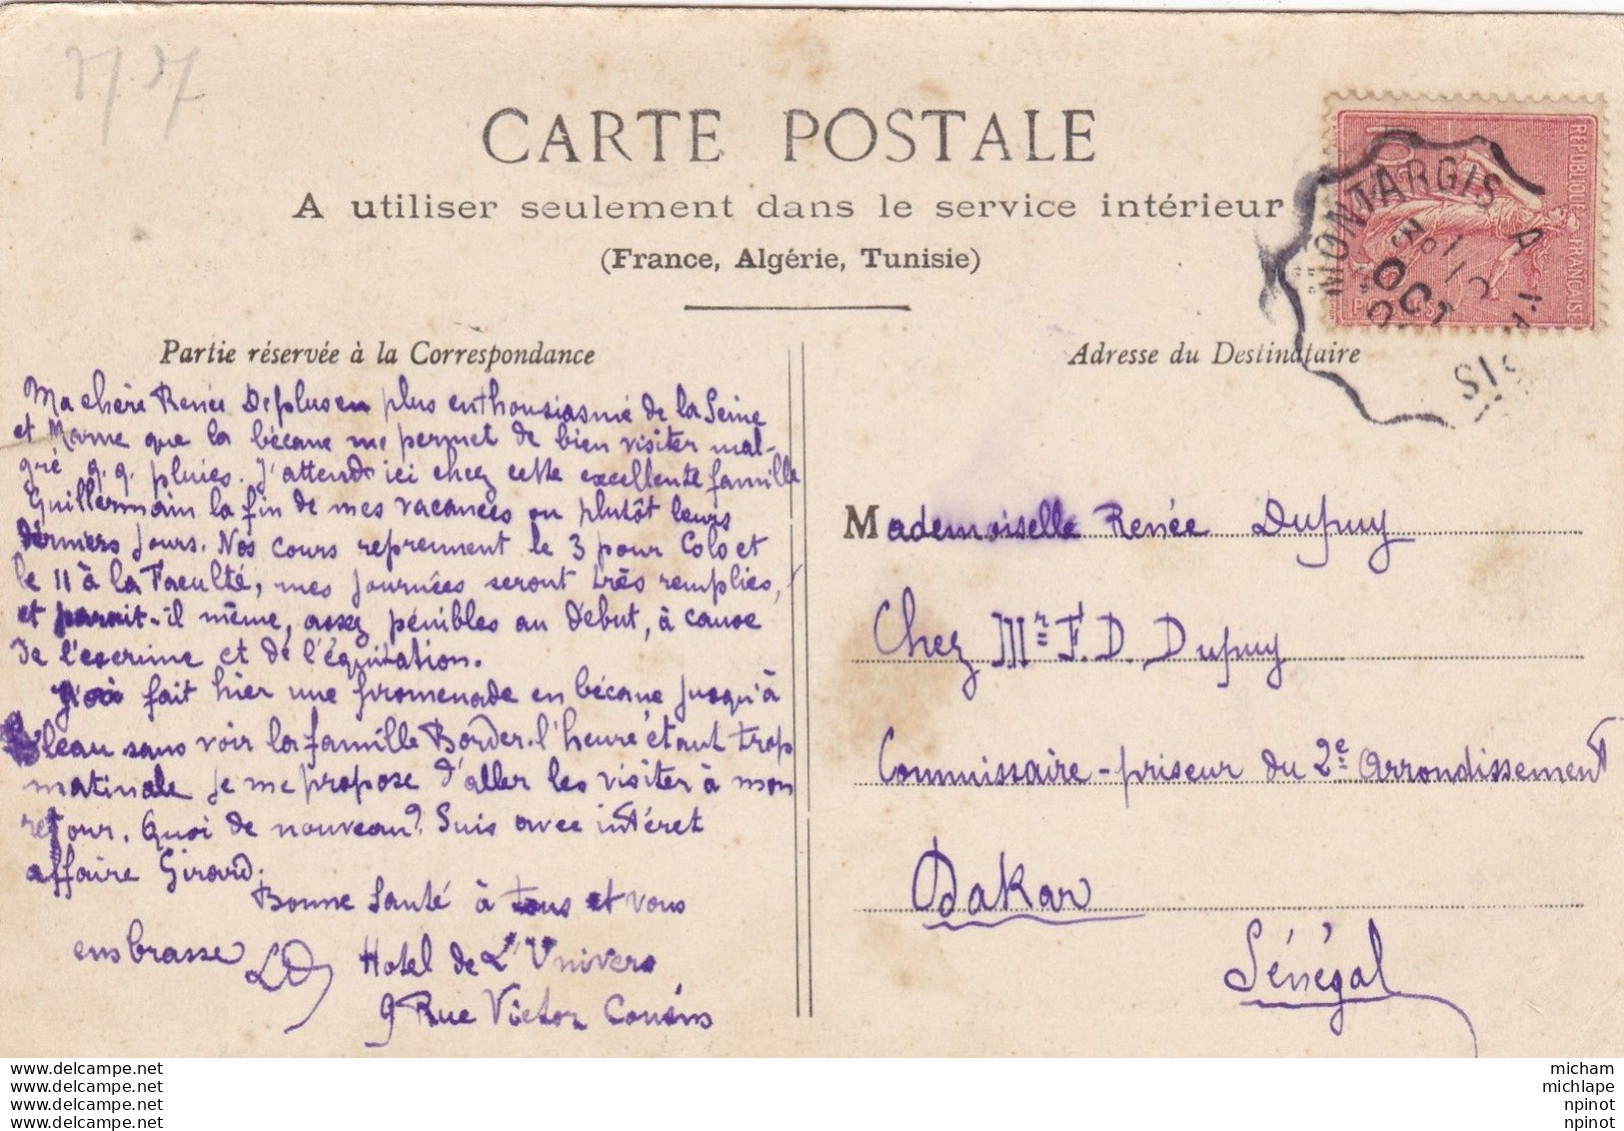 CARTE POSTALE
A utiliser seulement dans le service intérieur
(France, Algérie, Tunisie)
Partie réservée à la Correspondance
Ma chère Renée De plus en plus enthousiasmé de la Seine
et Marne que la bécane me permet de bien visiter mal-
gré q.q. pluies. J'attends ici chez cette excellente famille
Guillermain la fin de mes vacances ou plutôt leurs
derniers jours. Nos cours reprennent le 3 pour Colo et
le 11 à la Faculté, mes journées seront très remplies,
et parait-il même, assez pénibles au début, à cause
de l'escrime et de l'équitation.
J'ai fait hier une promenade en bécane jusqu'à
bleau sans voir la famille Border. l'heure étant trop
matinale je me propose d'aller les visiter à mon
retour. Quoi de nouveau? Suis avec intéret
affaire Girard.
Bonne Santé à tous et vous
embrasse LD
Hotel de L'Univers
9 Rue Victor Cousin
Adresse du Destinataire
Mademoiselle Renée Dupuy
Chez Mr F. D. Dupuy
Commissaire-priseur du 2e arrondissement
Dakar
Sénégal
REPUBLIQUE FRANÇAISE
POSTES
10
MONTARGIS A
OCT
www.delcampe.net
www.delcampe.net
www.delcampe.net
www.delcampe.net
micham
michlape
npinot
npinot